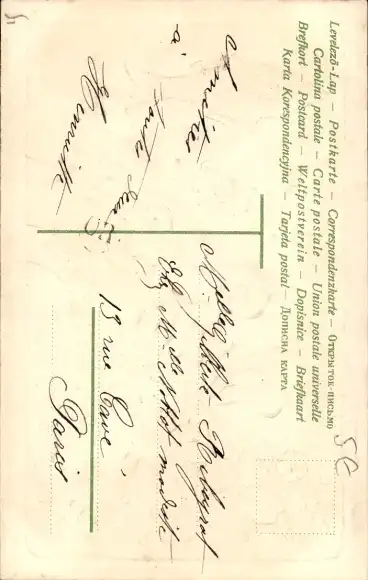 Levelező-Lap — Postkarte — Correspondenzkarte — Открыток-письмо
Cartolina postale — Carte postale — Union postale universelle
Brefkort — Postcard — Weltpostverein — Dopisnice — Briefkaart
Karta Korespondencyjna — Tarjeta postal — Дописна карта
Amitiés
à
toute
Henriette
Melle
Chez Melle modiste
13 rue Cavé
Paris
50